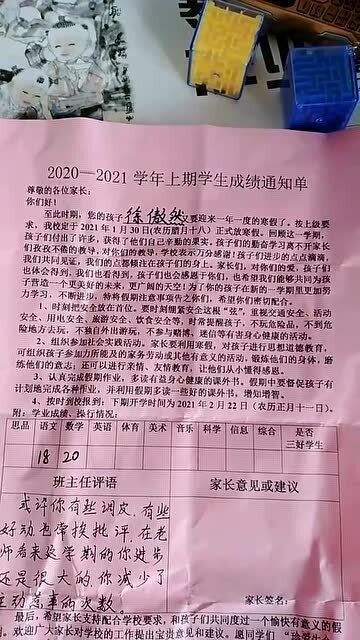 2020—2021 学年上期学生成绩通知单
尊敬的各位家长:
你们好!
至此时期,您的孩子徐傲然要迎来一年一度的寒假了。按上级要
求,我校定于 2021 年 1 月 30 日(农历腊月十八)正式放寒假。回顾这一学期,
孩子们付出了许多,获得了他们自己辛勤的果实。孩子们的勤奋学习离不开家长
们孜孜不倦的教导,对你们的教导,学校表示万分感谢!孩子们进步的点点滴滴,
我们共同见证,我们的点都倾注在孩子们的身上。家长们,对你们的爱,孩子们
也体会得到,我们也看得到,孩子们也会感恩于你们,也希望我们能够共同为孩
子营造一个更美好的未来,更广阔的天空!为了你的孩子在新的一学期里更加努
力学习,不断进步,特将假期注意事项告之你们,希望你们密切配合。
1、时刻把安全放在首位。要时刻绷紧安全这根“弦”,重视交通安全、活动
安全、用电安全、旅游安全、饮食安全等,时常提醒孩子,不玩危险品,不到危
险地方去玩,不独自外出游玩,不参与赌博、迷信等有害身心健康的活动。
2、组织参加社会实践活动。家长要利用寒假,对孩子进行思想道德教育,
可组织孩子参加力所能及的家务劳动或其他有意义的活动,锻炼他们的身体,磨
练他们的意志,还可以进行亲情、友情教育,让他们从小懂得感恩。
3、认真完成假期作业,多读有益身心健康的课外书。假期中要督促孩子有
计划地完成各种作业,并利用假期多读一些好的课外书,增知增智。
4、按时到校报到:下期开学时间为 2021 年 2 月 22 日(农历正月十一日)。
附:学业成绩、操行情况:
思品 语文 数学 英语 体育 美术 音乐 科学 信息 综合 是否三好学生
18 20
班主任评语 家长意见或建议
或许你有些调皮、有些
好动也常挨批评,在老
师看来这学期的你进步
还是很大的,你减少了
惹事的次数。
家长签名:
最后,希望家长支持配合学校要求,和孩子们共同度过一个愉快有意义的假
欢迎广大家长对学校的工作提出宝贵意见和建议。愿同学们